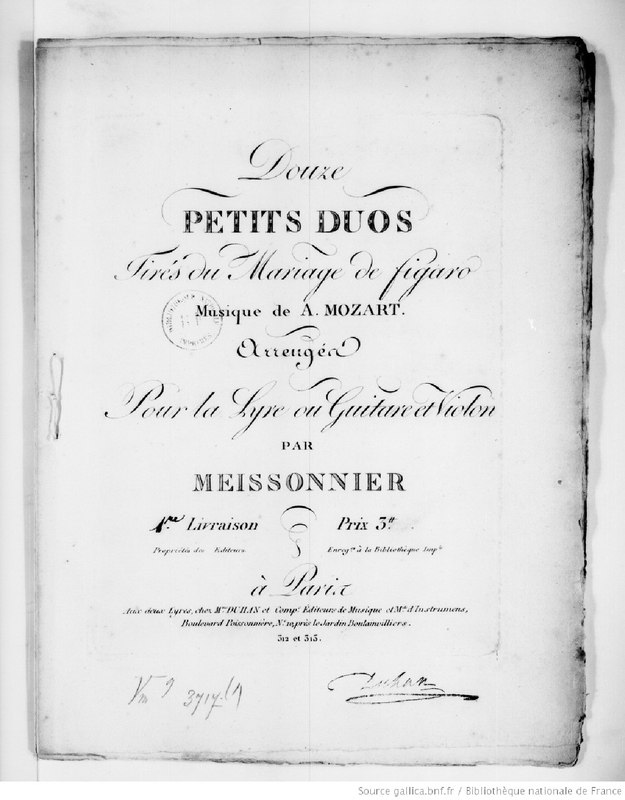 Douze
PETITS DUOS
Tirés du Mariage de figaro
Musique de A. MOZART.
Arrengés
Pour la Lyre ou Guitare et Violon
PAR
MEISSONNIER
1.re Livraison Prix 3.tt
Propriété des Editeurs Enreg.ée à la Bibliothèque Imp.le
à Paris
Aux deux Lyres, chez M.me DUHAN et Comp.e Editeurs de Musique et M.ds d'Instrumens,
Boulevard Poissonnière, N.o 10, près le Jardin Boulainvilliers.
312 et 313.
Vm 9 3717 (1)
Duhan
Source gallica.bnf.fr / Bibliothèque nationale de France